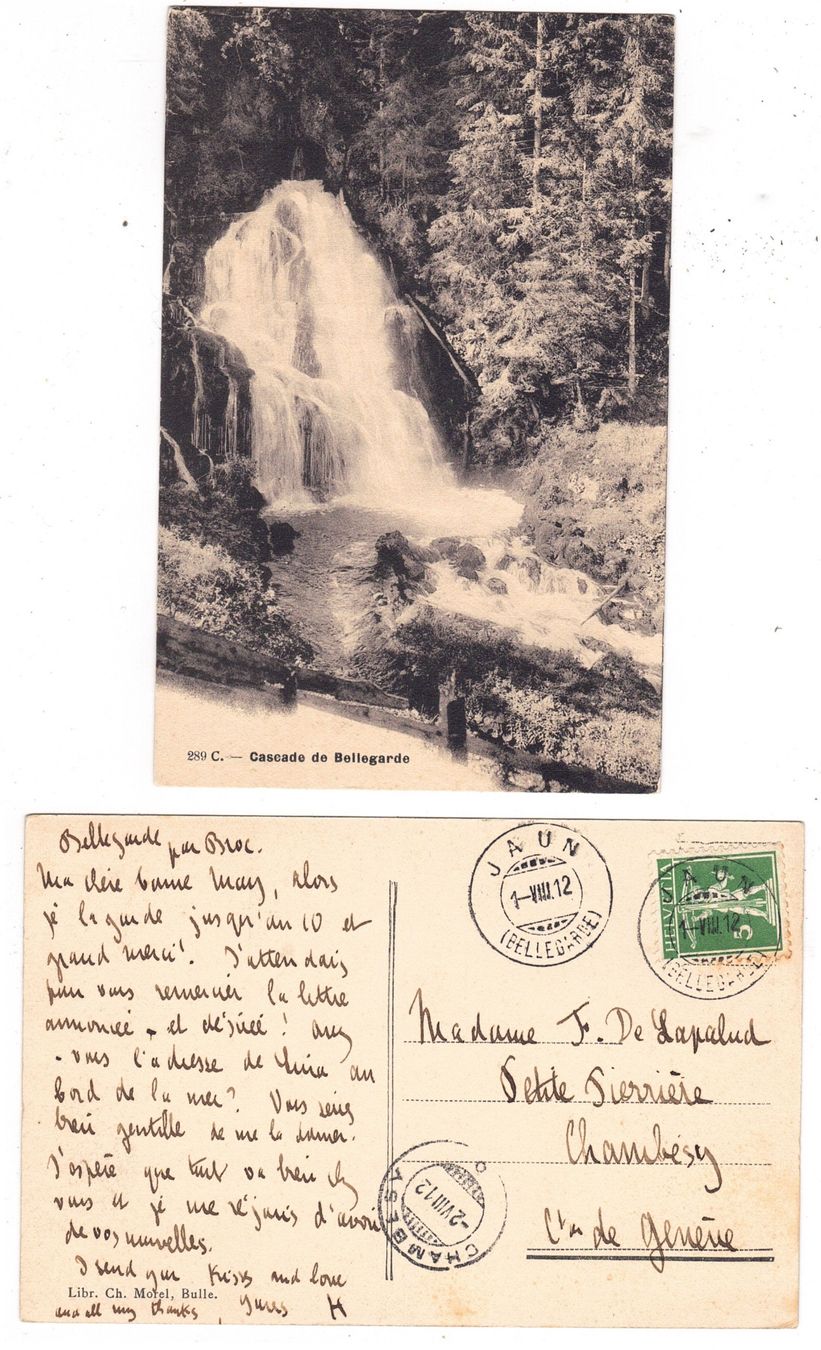 289 C. — Cascade de Bellegarde
Bellegarde par Broc.
Ma chère bonne Mary, alors
je la garde jusqu'au 10 et
grand merci! J'attendais
pour vous remercier la lettre
annoncée - et désirée! avez
- vous l'adresse de au
bord de la mer? Vous seriez
bien gentille de me la donner.
J'espère que tout va bien chez
vous et je me réjouis d'avoir
de vos nouvelles.
I send you kisses and love
and all my thanks, Yours H
Libr. Ch. Morel, Bulle.
JAUN
1-VIII.12
(BELLEGARDE)
HELV
5
JAUN
1-VIII.12
(BELLEGARDE)
Madame F. De Lapalud
Petite Pierrière
Chambésy
Cton de Genève
CHAMBÉSY
-2VIII12